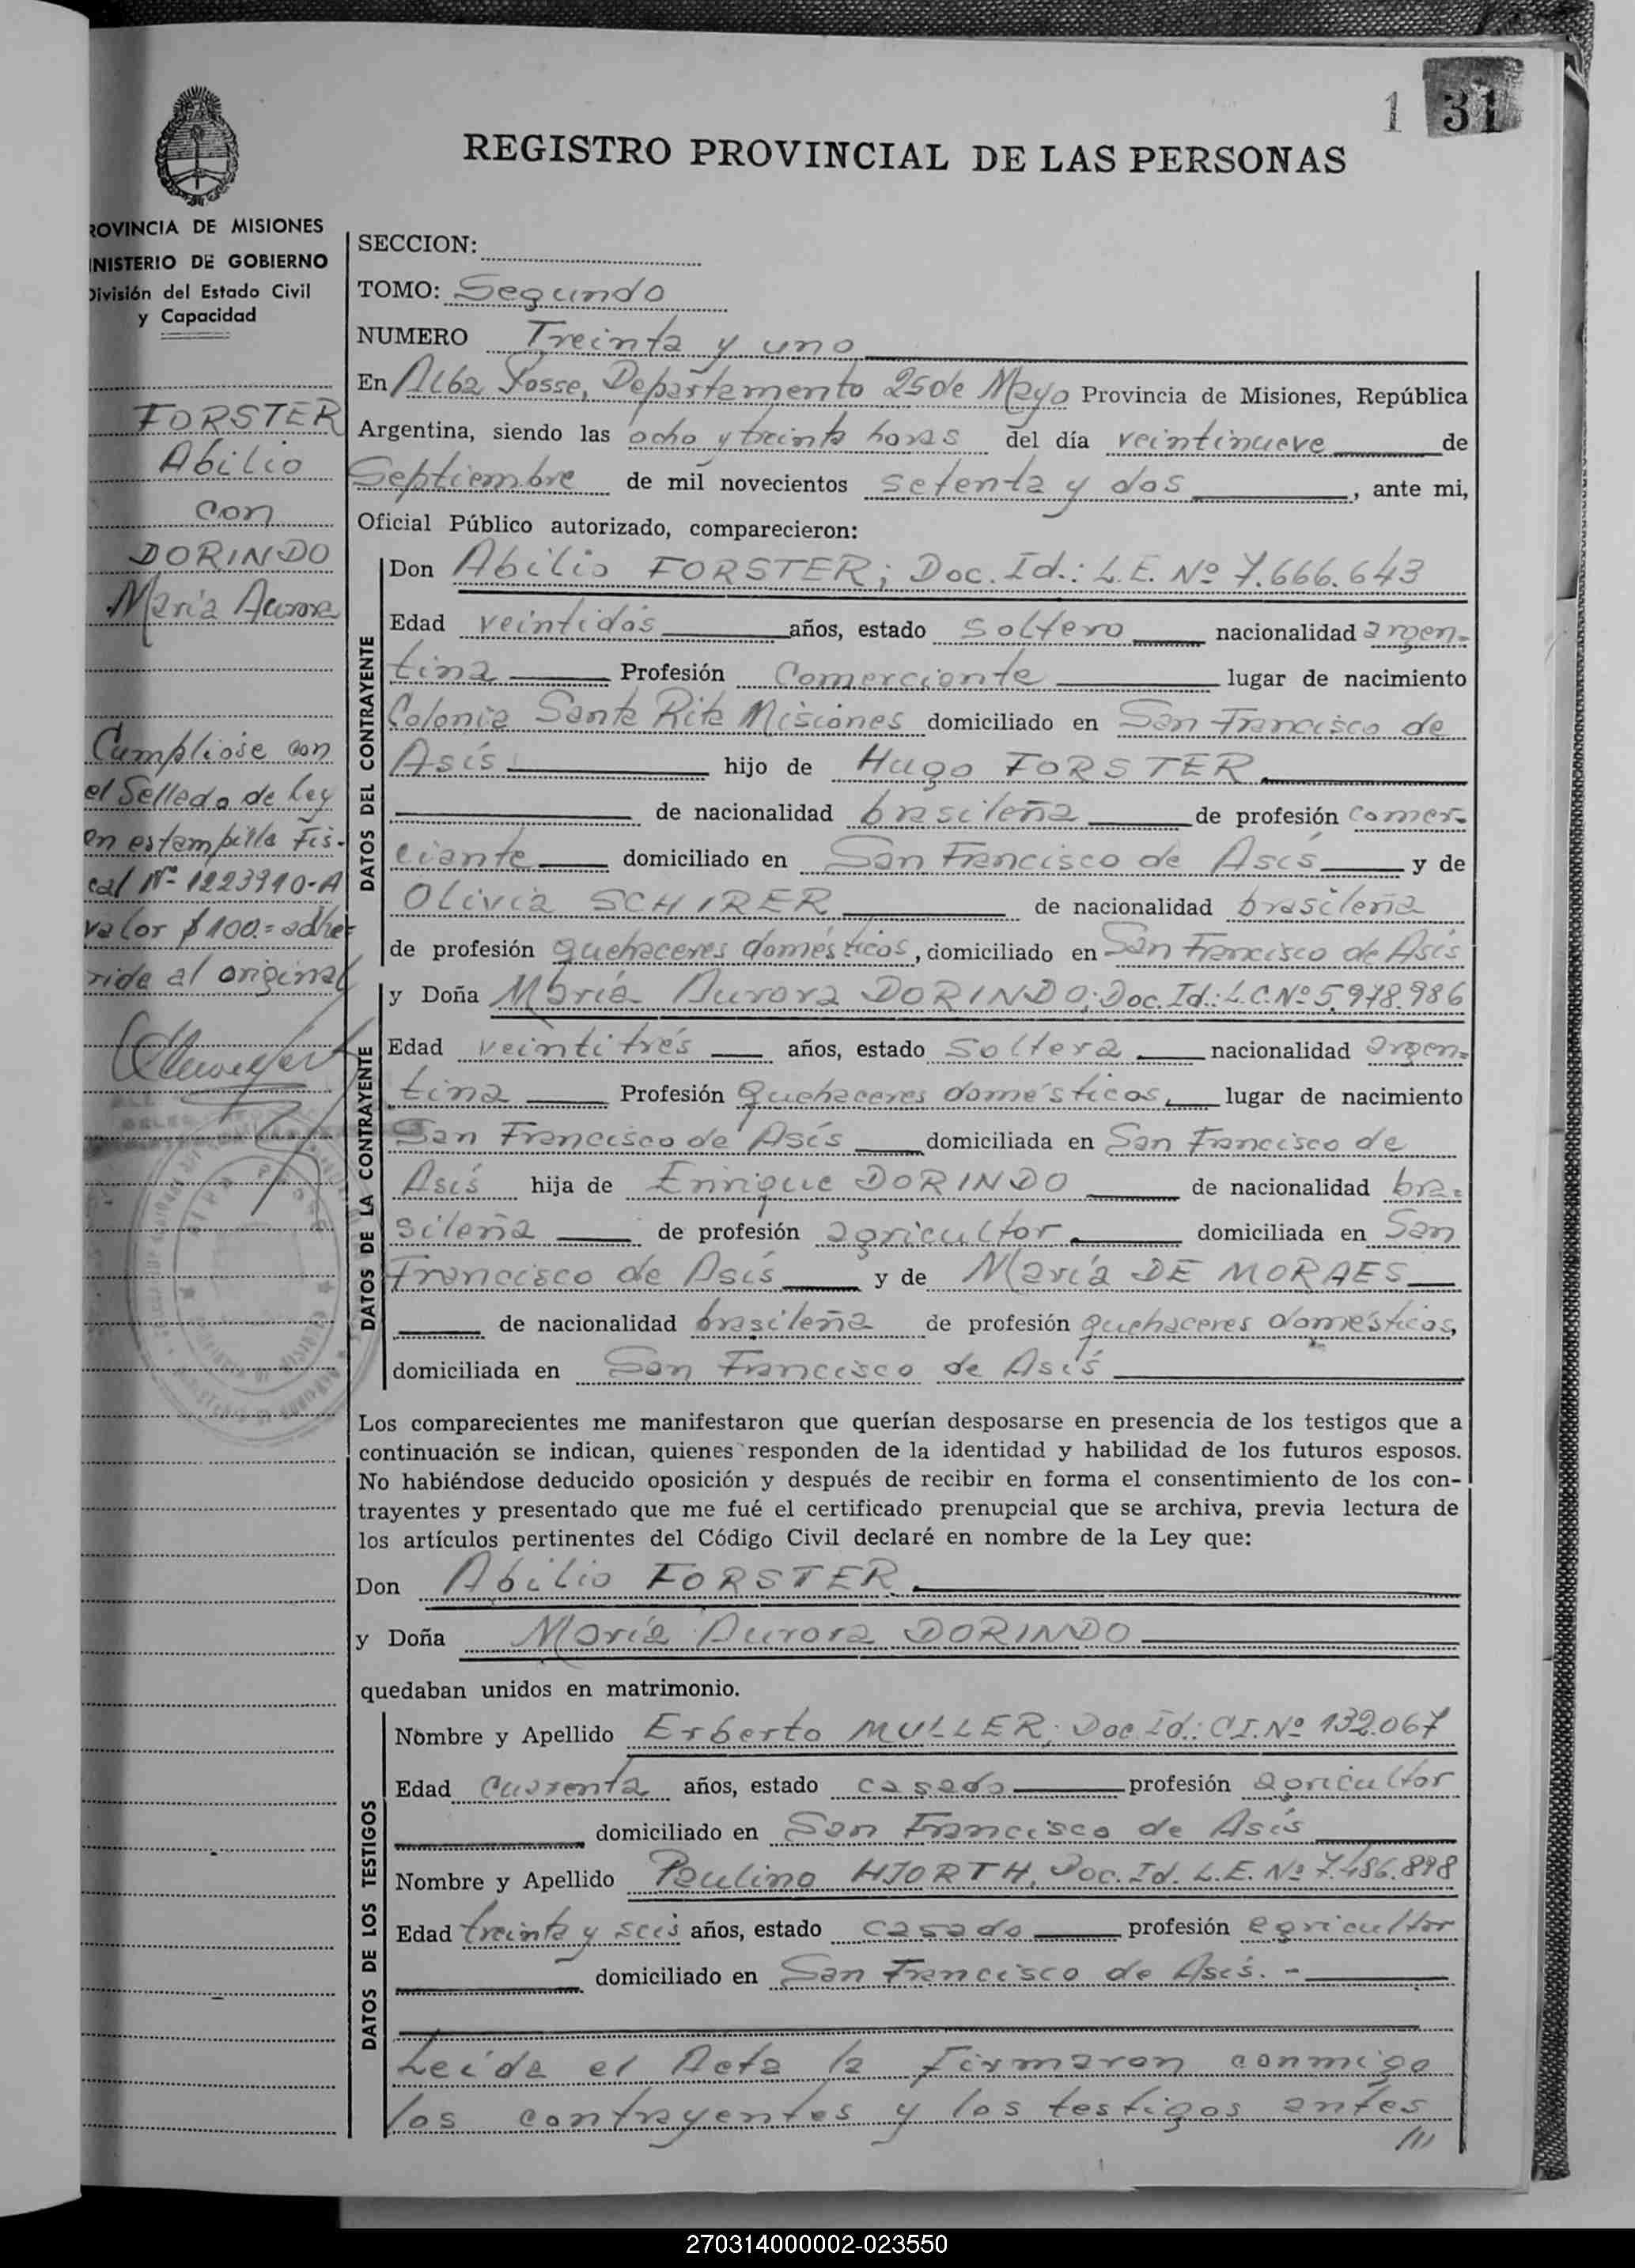 1 31
REGISTRO PROVINCIAL DE LAS PERSONAS
ROVINCIA DE MISIONES
INISTERIO DE GOBIERNO
División del Estado Civil
y Capacidad
FORSTER
Abilio
con
DORINDO
María Aurora
Cumplióse con
el Sellado de Ley
en estampilla Fis-
cal Nº 1223910-A
valor $ 100.= adhe-
rida al original
SECCION:
TOMO: Segundo
NUMERO Treinta y uno
En Alba Posse, Departamento 25 de Mayo Provincia de Misiones, República
Argentina, siendo las ocho y treinta horas del día veintinueve de
Septiembre de mil novecientos setenta y dos, ante mi,
Oficial Público autorizado, comparecieron:
DATOS DEL CONTRAYENTE
Don Abilio FORSTER; Doc. Id.: L.E. Nº 7.666.643
Edad veintidós años, estado soltero nacionalidad argen-
tina Profesión Comerciante lugar de nacimiento
Colonia Santa Rita Misiones domiciliado en San Francisco de
Asís hijo de Hugo FORSTER
de nacionalidad brasileña de profesión comer-
ciante domiciliado en San Francisco de Asís y de
Olivia SCHIRER de nacionalidad brasileña
de profesión quehaceres domésticos, domiciliado en San Francisco de Asís
DATOS DE LA CONTRAYENTE
y Doña María Aurora DORINDO; Doc. Id.: L.C. Nº 5.978.986
Edad veintitrés años, estado soltera nacionalidad argen-
tina Profesión quehaceres domésticos, lugar de nacimiento
San Francisco de Asís domiciliada en San Francisco de
Asís hija de Enrique DORINDO de nacionalidad bra-
sileña de profesión agricultor domiciliada en San
Francisco de Asís y de María DE MORAES
de nacionalidad brasileña de profesión quehaceres domésticos,
domiciliada en San Francisco de Asís
Los comparecientes me manifestaron que querían desposarse en presencia de los testigos que a
continuación se indican, quienes responden de la identidad y habilidad de los futuros esposos.
No habiéndose deducido oposición y después de recibir en forma el consentimiento de los con-
trayentes y presentado que me fué el certificado prenupcial que se archiva, previa lectura de
los artículos pertinentes del Código Civil declaré en nombre de la Ley que:
Don Abilio FORSTER
y Doña María Aurora DORINDO
quedaban unidos en matrimonio.
DATOS DE LOS TESTIGOS
Nombre y Apellido Erberto MULLER, Doc. Id.: C.I. Nº 132.067
Edad cuarenta años, estado casado profesión agricultor
domiciliado en San Francisco de Asís
Nombre y Apellido Paulino HJORTH, Doc. Id. L.E. Nº 7.486.898
Edad treinta y seis años, estado casado profesión agricultor
domiciliado en San Francisco de Asís. -
Leída el Acta la firmaron conmigo
los contrayentes y los testigos antes
///
270314000002-023550